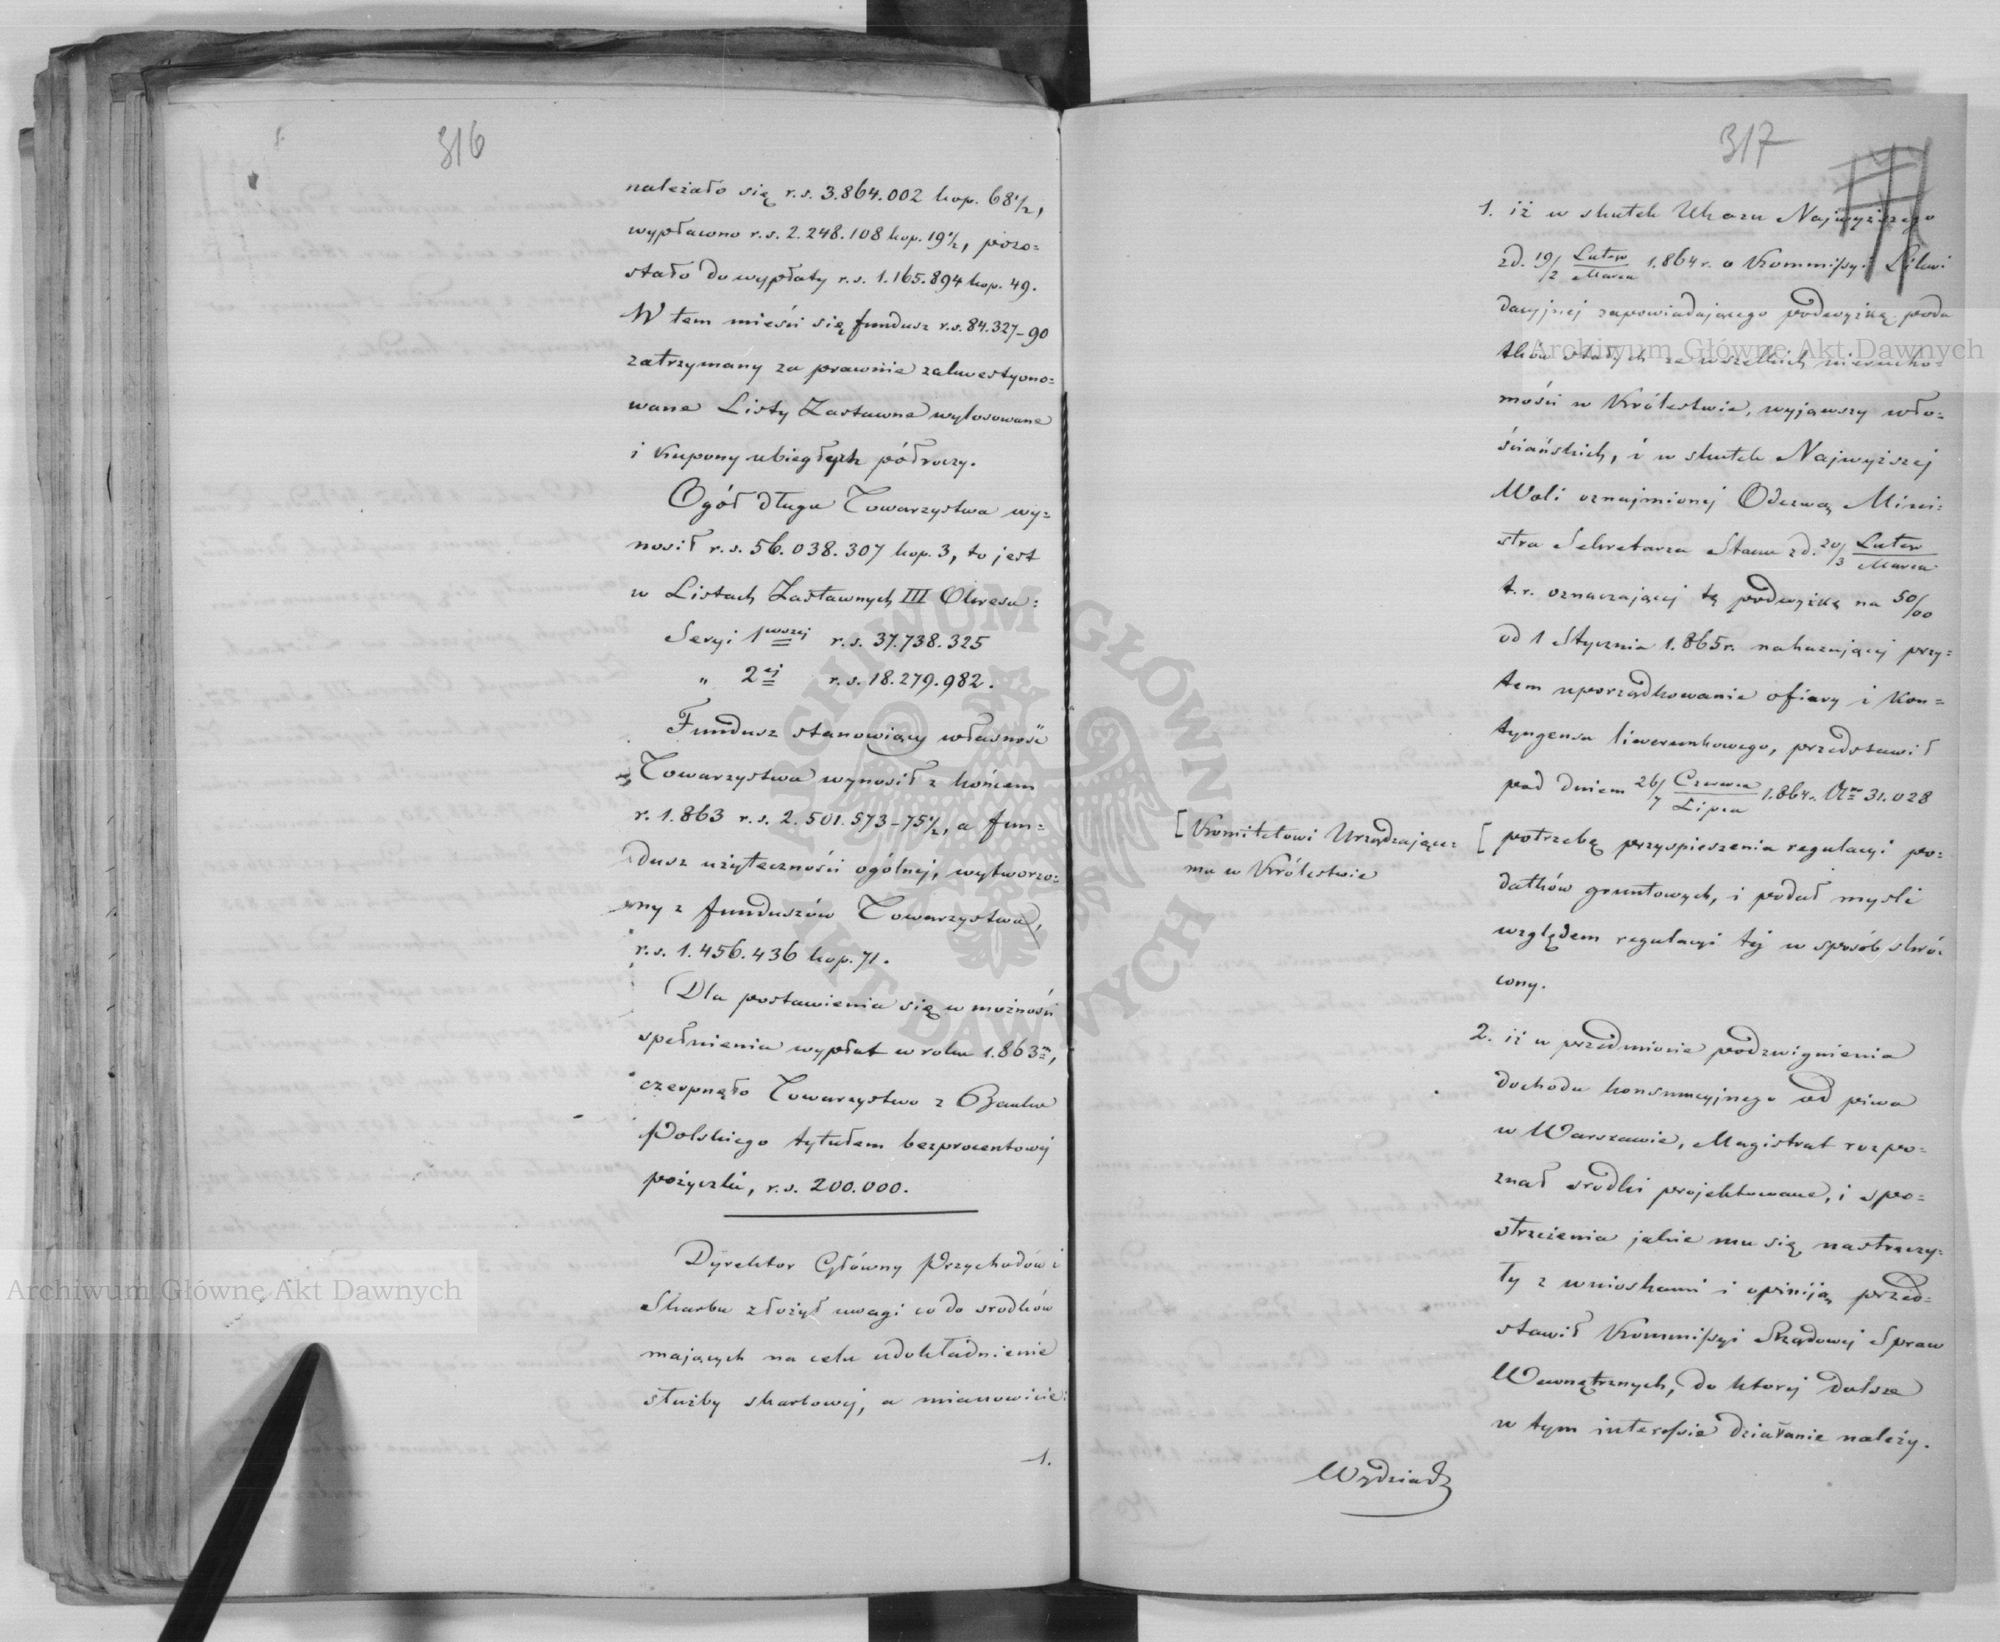 316
należało się r.s. 3.864.002 kop. 68½,
wypłacono r.s. 2.248.108 kop. 19½, pozo=
stało do wypłaty r.s. 1.165.894 kop. 49.
W tem mieści się fundusz r.s. 84.327–90
zatrzymany za prawnie zakwestyono=
wane Listy Zastawne wylosowane
i Kupony ubiegłych półroczy.
Ogół długu Towarzystwa wy=
nosił r.s. 56.038.307 kop. 3, to jest
w Listach Zastawnych III Okresu:
Seryi 1wszej r.s. 37.738.325
" 2ej r.s. 18.279.982.
Fundusz stanowiący własność
Towarzystwa wynosił z końcem
r. 1.863 r.s. 2.501.573–75½, a fun=
dusz użyteczności ogólnej, wytworzo=
ny z funduszów Towarzystwa,
r.s. 1.456.436 kop. 71.
Dla postawienia się w możności
spełnienia wypłat w roku 1.863m,
czerpnęło Towarzystwo z Banku
Polskiego tytułem bezprocentowej
pożyczki, r.s. 200.000.
Dyrektor Główny Przychodów i
Skarbu złożył uwagi co do srodków
mających na celu udokładnienie
służby skarbowej, a mianowicie:
1.
317
1. iż w skutek Ukazu Najwyższego
z d. 19/2 Lutego/Marca 1.864 r. o Kommissyi Likwi
dacyjnej zapowiadającego podwyżkę poda
tków stałych ze wszelkich nierucho=
mości w Królestwie, wyjąwszy wło=
ściańskich, i w skutek Najwyższej
Woli oznajmionej Odezwą Mini=
stra Sekretarza Stanu z d. 20/3 Lutego/Marca
t.r. oznaczającej tę podwyżkę na 50/00
od 1 Stycznia 1.865 r. nakazującej przy=
tem uporządkowanie ofiary i kon=
tyngensu liwerunkowego, przedstawił
pod dniem 26/7 Czerwca/Lipca 1.864 r. Nro 31.028
[Komitetowi Urządzające=
mu w Królestwie
[potrzebę przyspieszenia regulacyi po=
datków gruntowych, i podał mysli
względem regulacyi tej w sposób skró=
cony.
2. iż w przedmiocie podzwignienia
dochodu konsumcyjnego od piwa
w Warszawie, Magistrat rozpo=
znał srodki projektowane, i spo=
strzeżenia jakie mu się nastręczy=
ły z wnioskami i opiniją przed=
stawił Kommissyi Rządowej Spraw
Wewnętrznych, do ktorej dalsze
w tym interessie działanie należy.
Wydział
Archiwum Główne Akt Dawnych
Archiwum Główne Akt Dawnych
ARCHIWUM GŁÓWNE AKT DAWNYCH